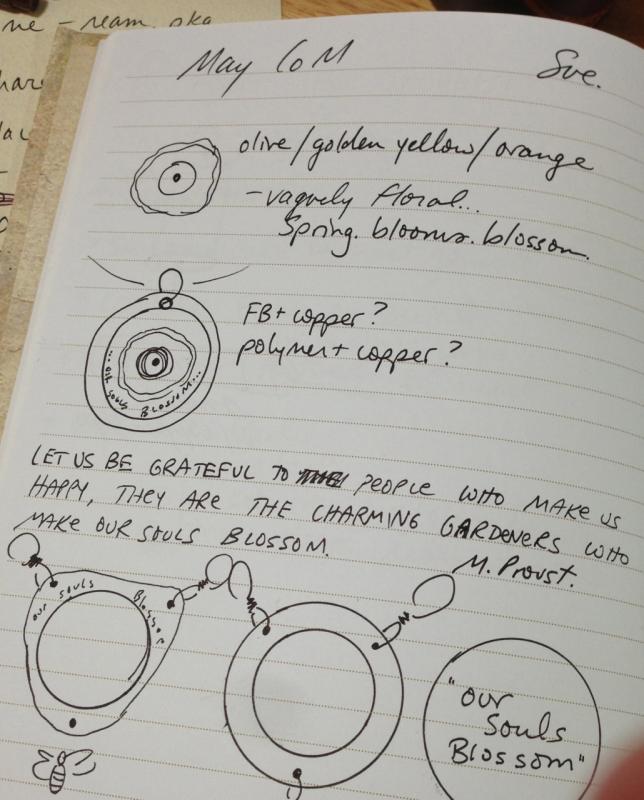 May CoM
Sue.
olive/golden yellow/orange
- vaguely floral...
Spring. blooms. blossom.
FB + copper?
polymer + copper?
our souls BLOSSOM...
LET US BE GRATEFUL TO PEOPLE WHO MAKE US
HAPPY, THEY ARE THE CHARMING GARDENERS WHO
MAKE OUR SOULS BLOSSOM.
M. Proust.
our souls Blossom
"our
Souls
Blossom"